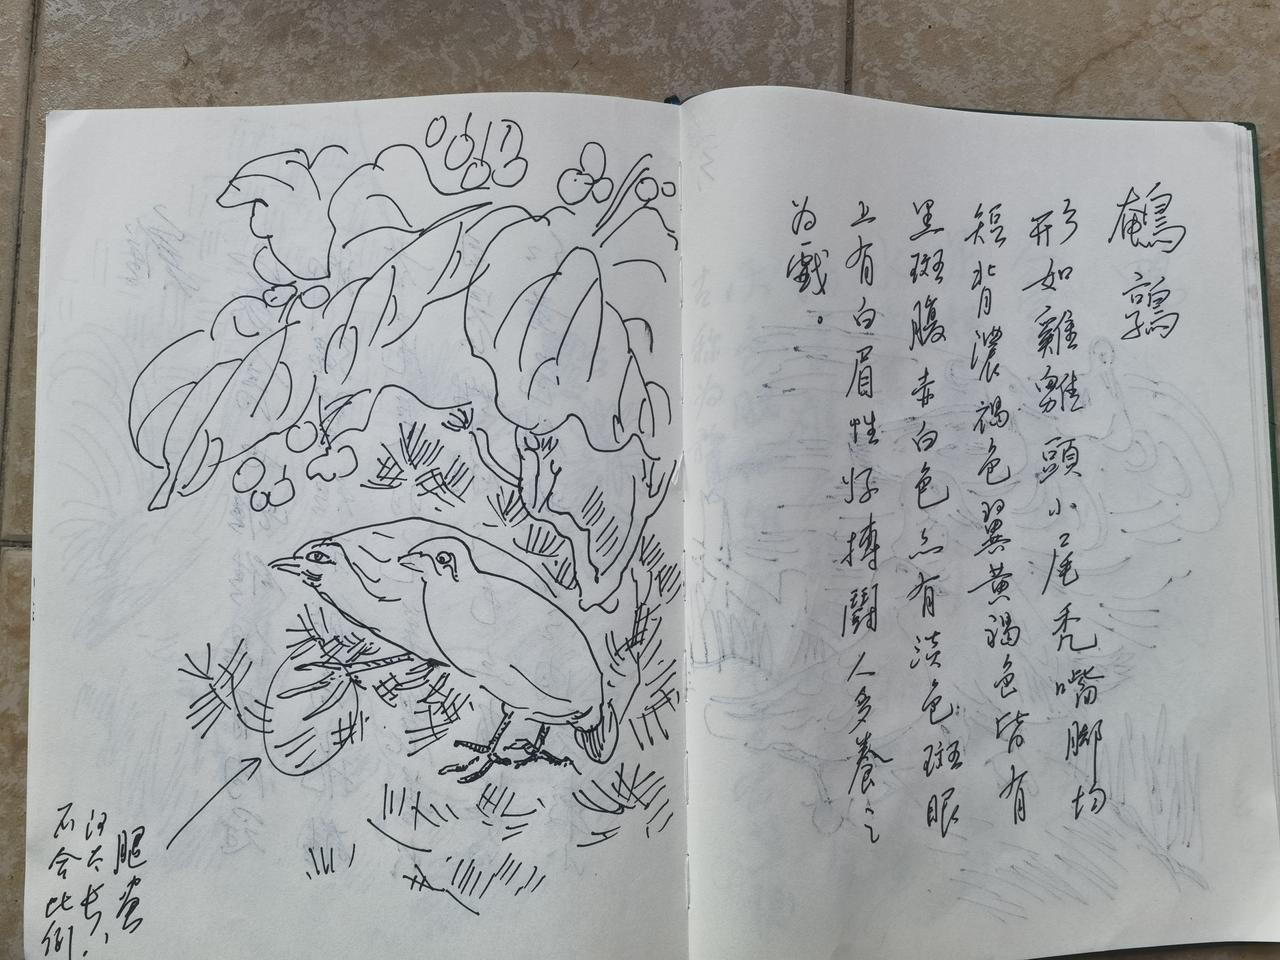 鵪鶉
形如雞雛頭小尾禿嘴脚均
短背濃褐色翼黄褐色皆有
黑斑腹赤白色亦有淡色斑眼
上有白眉性好搏鬪人多養之
为戲。
腿畫
得太長,
不合比例.